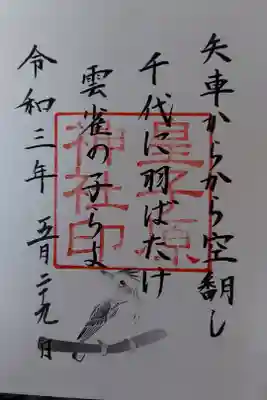 矢車からから空翻し
千代に羽ばたけ
雲雀の子らよ
令和三年 五月二十九日
神社印